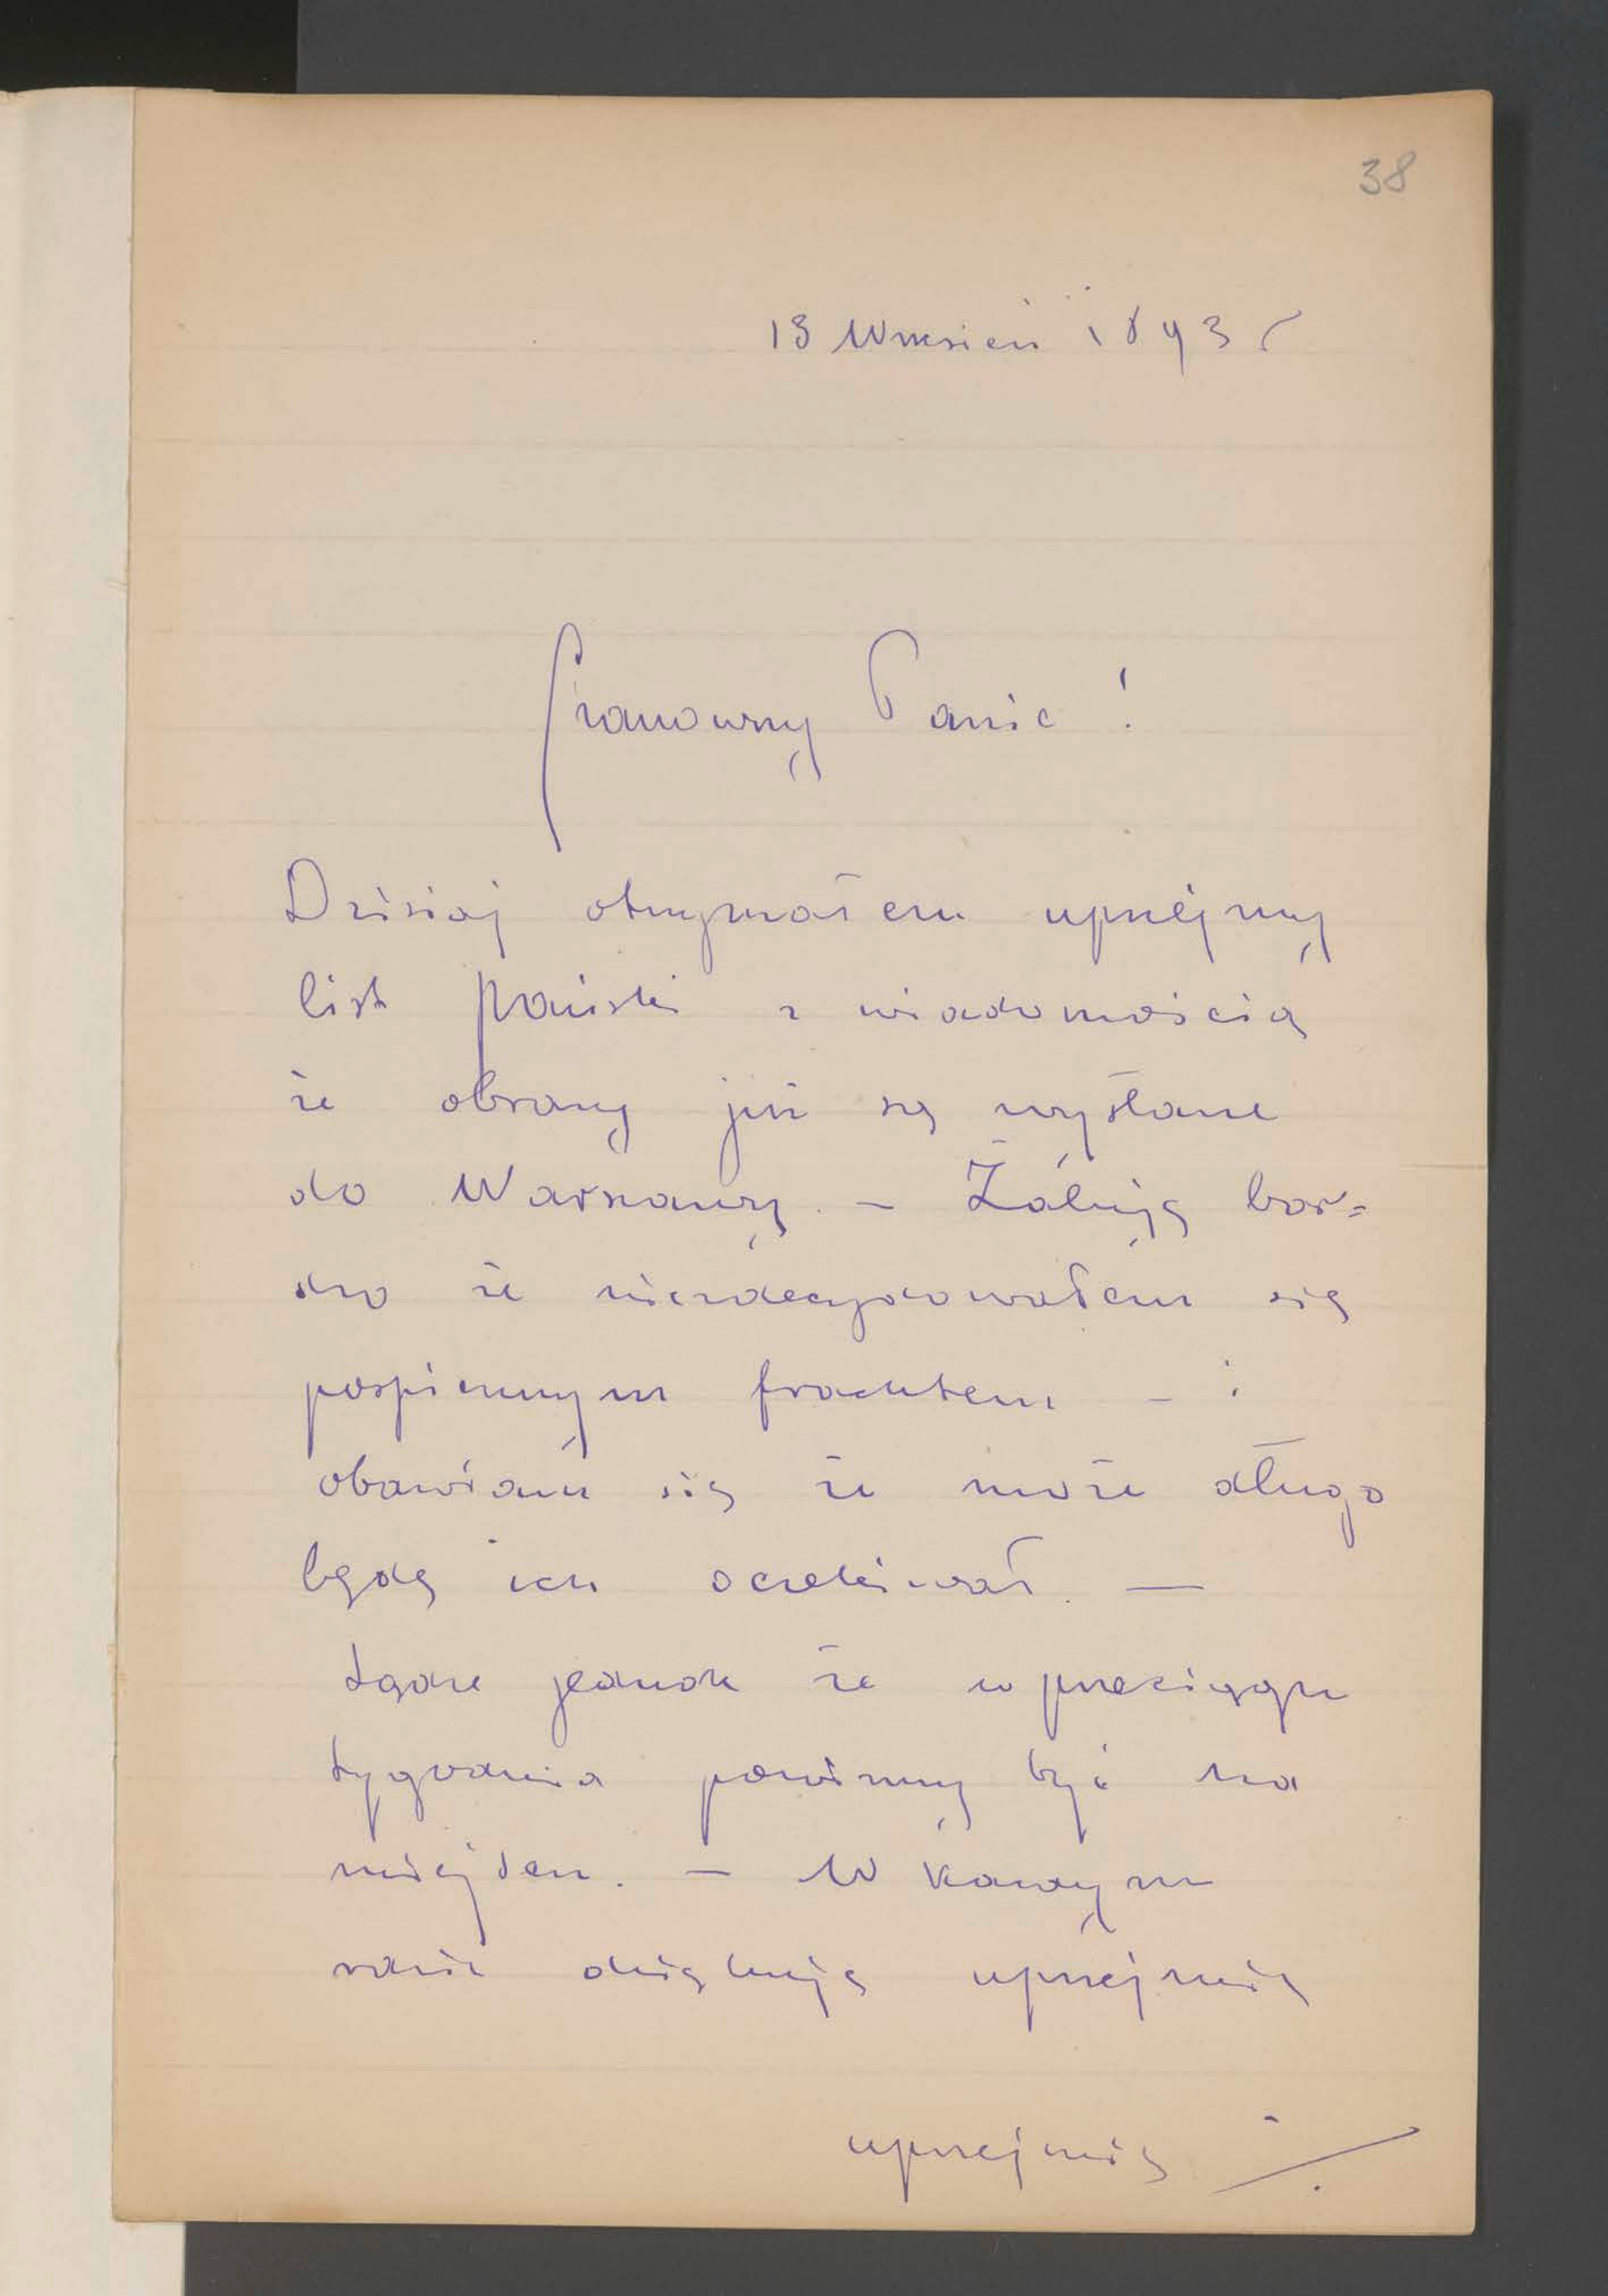 38
13 Wrzesień 1893 r
Szanowny Panie !
Dzisiaj otrzymałem uprzéjmy
list pański z wiadomością
że obrazy już są wysłane
do Warszawy. – Żałuję bar=
dzo że niezdecydowałem się
pospiesznym frachtem – i
obawiam się że może długo
będę ich oczekiwał. —
Sądzę jednak że w przeciągu
tygodnia powinny być na
miejscu. – W każdym
razie dziękuję uprzejmie
uprzejmie